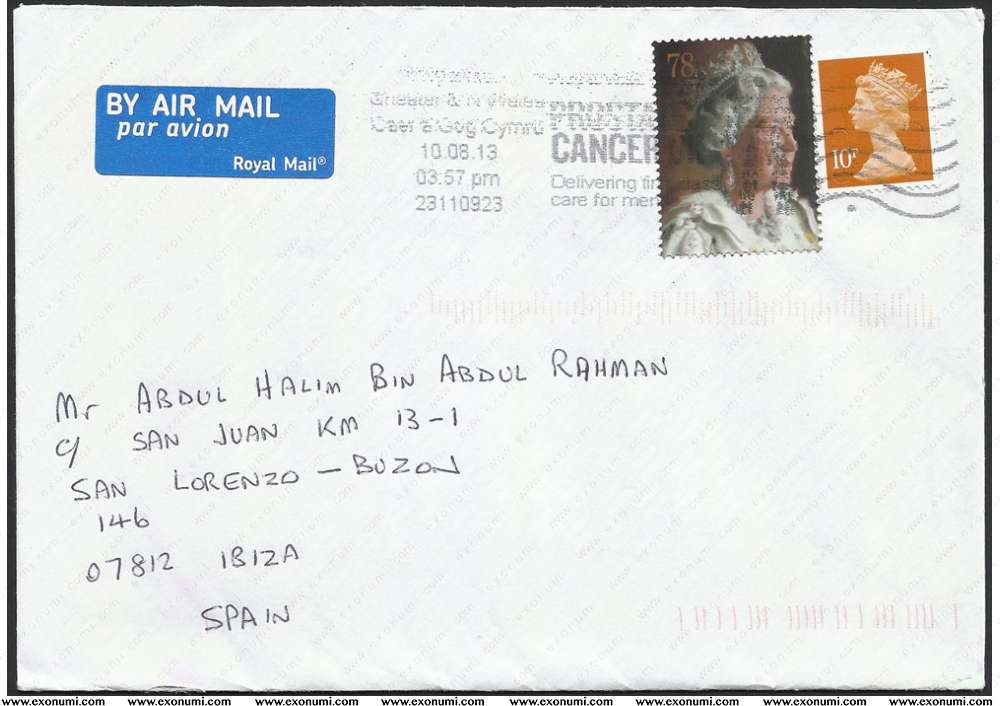 BY AIR MAIL
par avion
Royal Mail®
Chester & N Wales
Caer a Gog Cymru
10.08.13
03:57 pm
23110923
CANCER
Delivering
care for men
78
10P
Mr ABDUL HALIM BIN ABDUL RAHMAN
c/ SAN JUAN KM 13-1
SAN LORENZO – BUZON
146
07812 IBIZA
SPAIN
www.exonumi.com www.exonumi.com www.exonumi.com www.exonumi.com www.exonumi.com www.exonumi.com www.exonumi.com www.exonumi.com